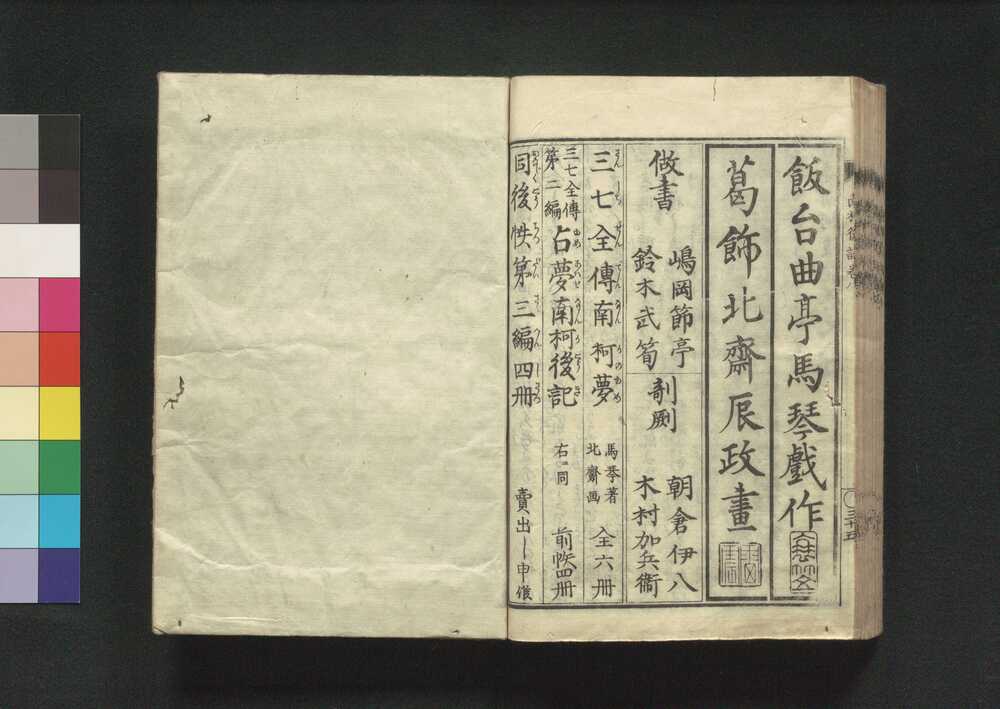 飯台曲亭馬琴戲作
葛飾北齋辰政畫
做書
嶋岡節亭
鈴木武筍
剞劂
朝倉伊八
木村加兵衞
三七全傳南柯夢
馬琴著
北齋画
全六册
三七全傳
第二編
占夢南柯後記
右同
前帙四册
同後帙第三編四册
賣出し申候
三十五